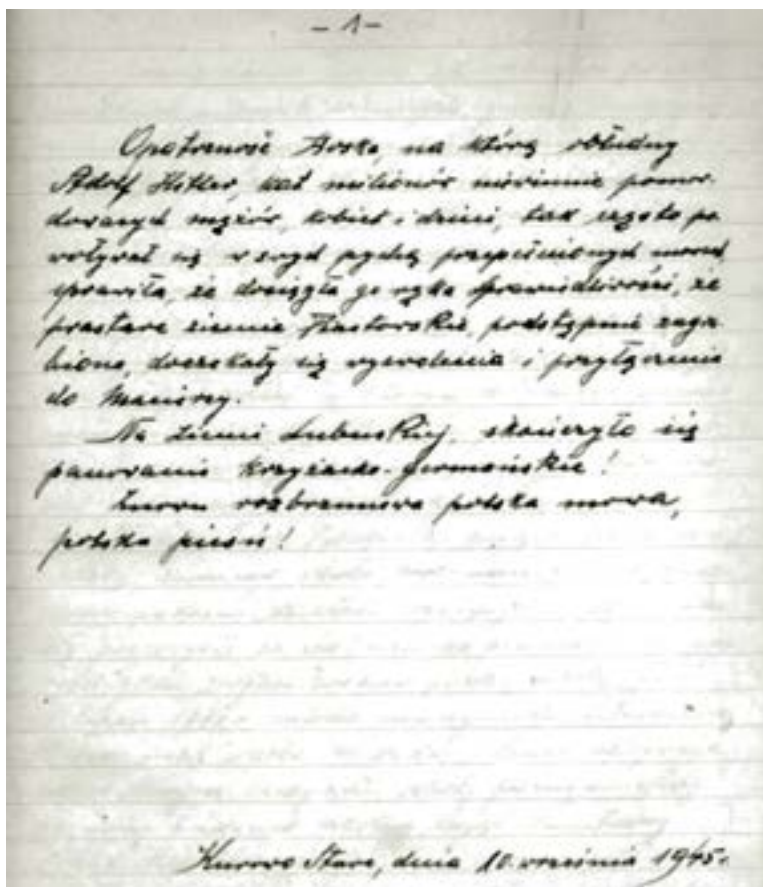 - 1 -
Opatrzność Boska, na którą obłudny
Adolf Hitler, kat milionów niewinnie pomor-
dowanych mężów, kobiet i dzieci, tak często po
woływał się w swych pychą przepełnionych mowach
sprawiła, że dosięgła go ręka sprawiedliwości, że
prastare ziemie Piastowskie, podstępnie zagra-
bione, doczekały się wyzwolenia i przyłączenia
do Macierzy.
Na ziemi Lubuskiej, skończyło się
panowanie krzyżacko-germańskie!
Znowu rozbrzmiewa polska mowa,
polska pieśń!
Kurowo Stare, dnia 10. września 1945.